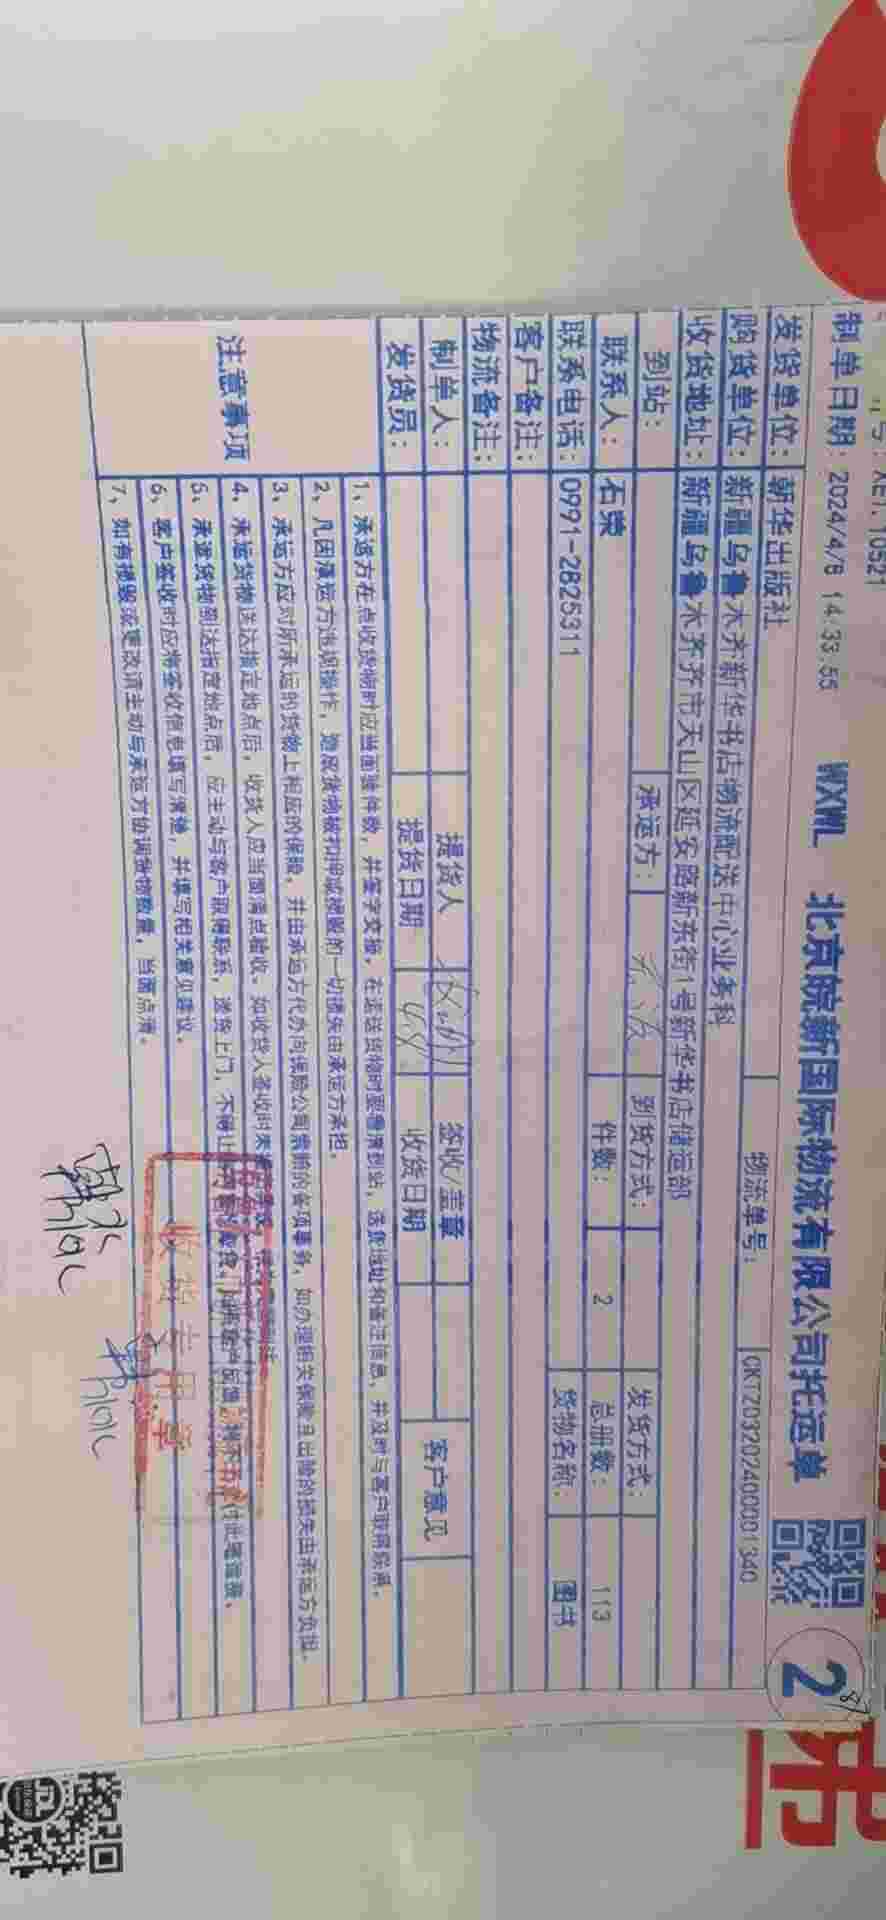 WXWL 北京皖新国际物流有限公司托运单
制单日期：2024/4/8 14:33:55
2
发货单位：朝华出版社 物流单号：CKTZ0320240001340
购货单位：新疆乌鲁木齐新华书店物流配送中心业务科
收货地址：新疆乌鲁木齐市天山区延安路新东街1号新华书店储运部
到站： 承运方： 到货方式： 发货方式：
联系人：石荣 件数：2 总册数：113
联系电话：0991-2825311 货物名称：图书
客户备注：
物流备注：
制单人： 提货人 签收/盖章 客户意见
发货员： 提货日期 4.8 收货日期
注意事项
1、承运方在点收货物时应当面验件数，并签字交接，在运送货物时要看清到站，送货地址和备注信息，并及时与客户取得联系。
2、凡因承运方违规操作，造成货物被扣押或损毁的一切损失由承运方承担。
3、承运方应对所承运的货物上相应的保险，并由承运方代办向保险公司索赔的各项事务，如办理相关保险且出险的损失由承运方负担。
4、承运货物送达指定地点后，收货人应当面清点验收，如收货人签收时
5、承运货物到达指定地点后，应主动与客户取得联系，送货上门，不得让
6、客户签收时应将签收信息填写清楚，并填写相关意见建议。
7、如有损毁或更改请主动与承运方协调货物数量，当面点清。
收货专用章